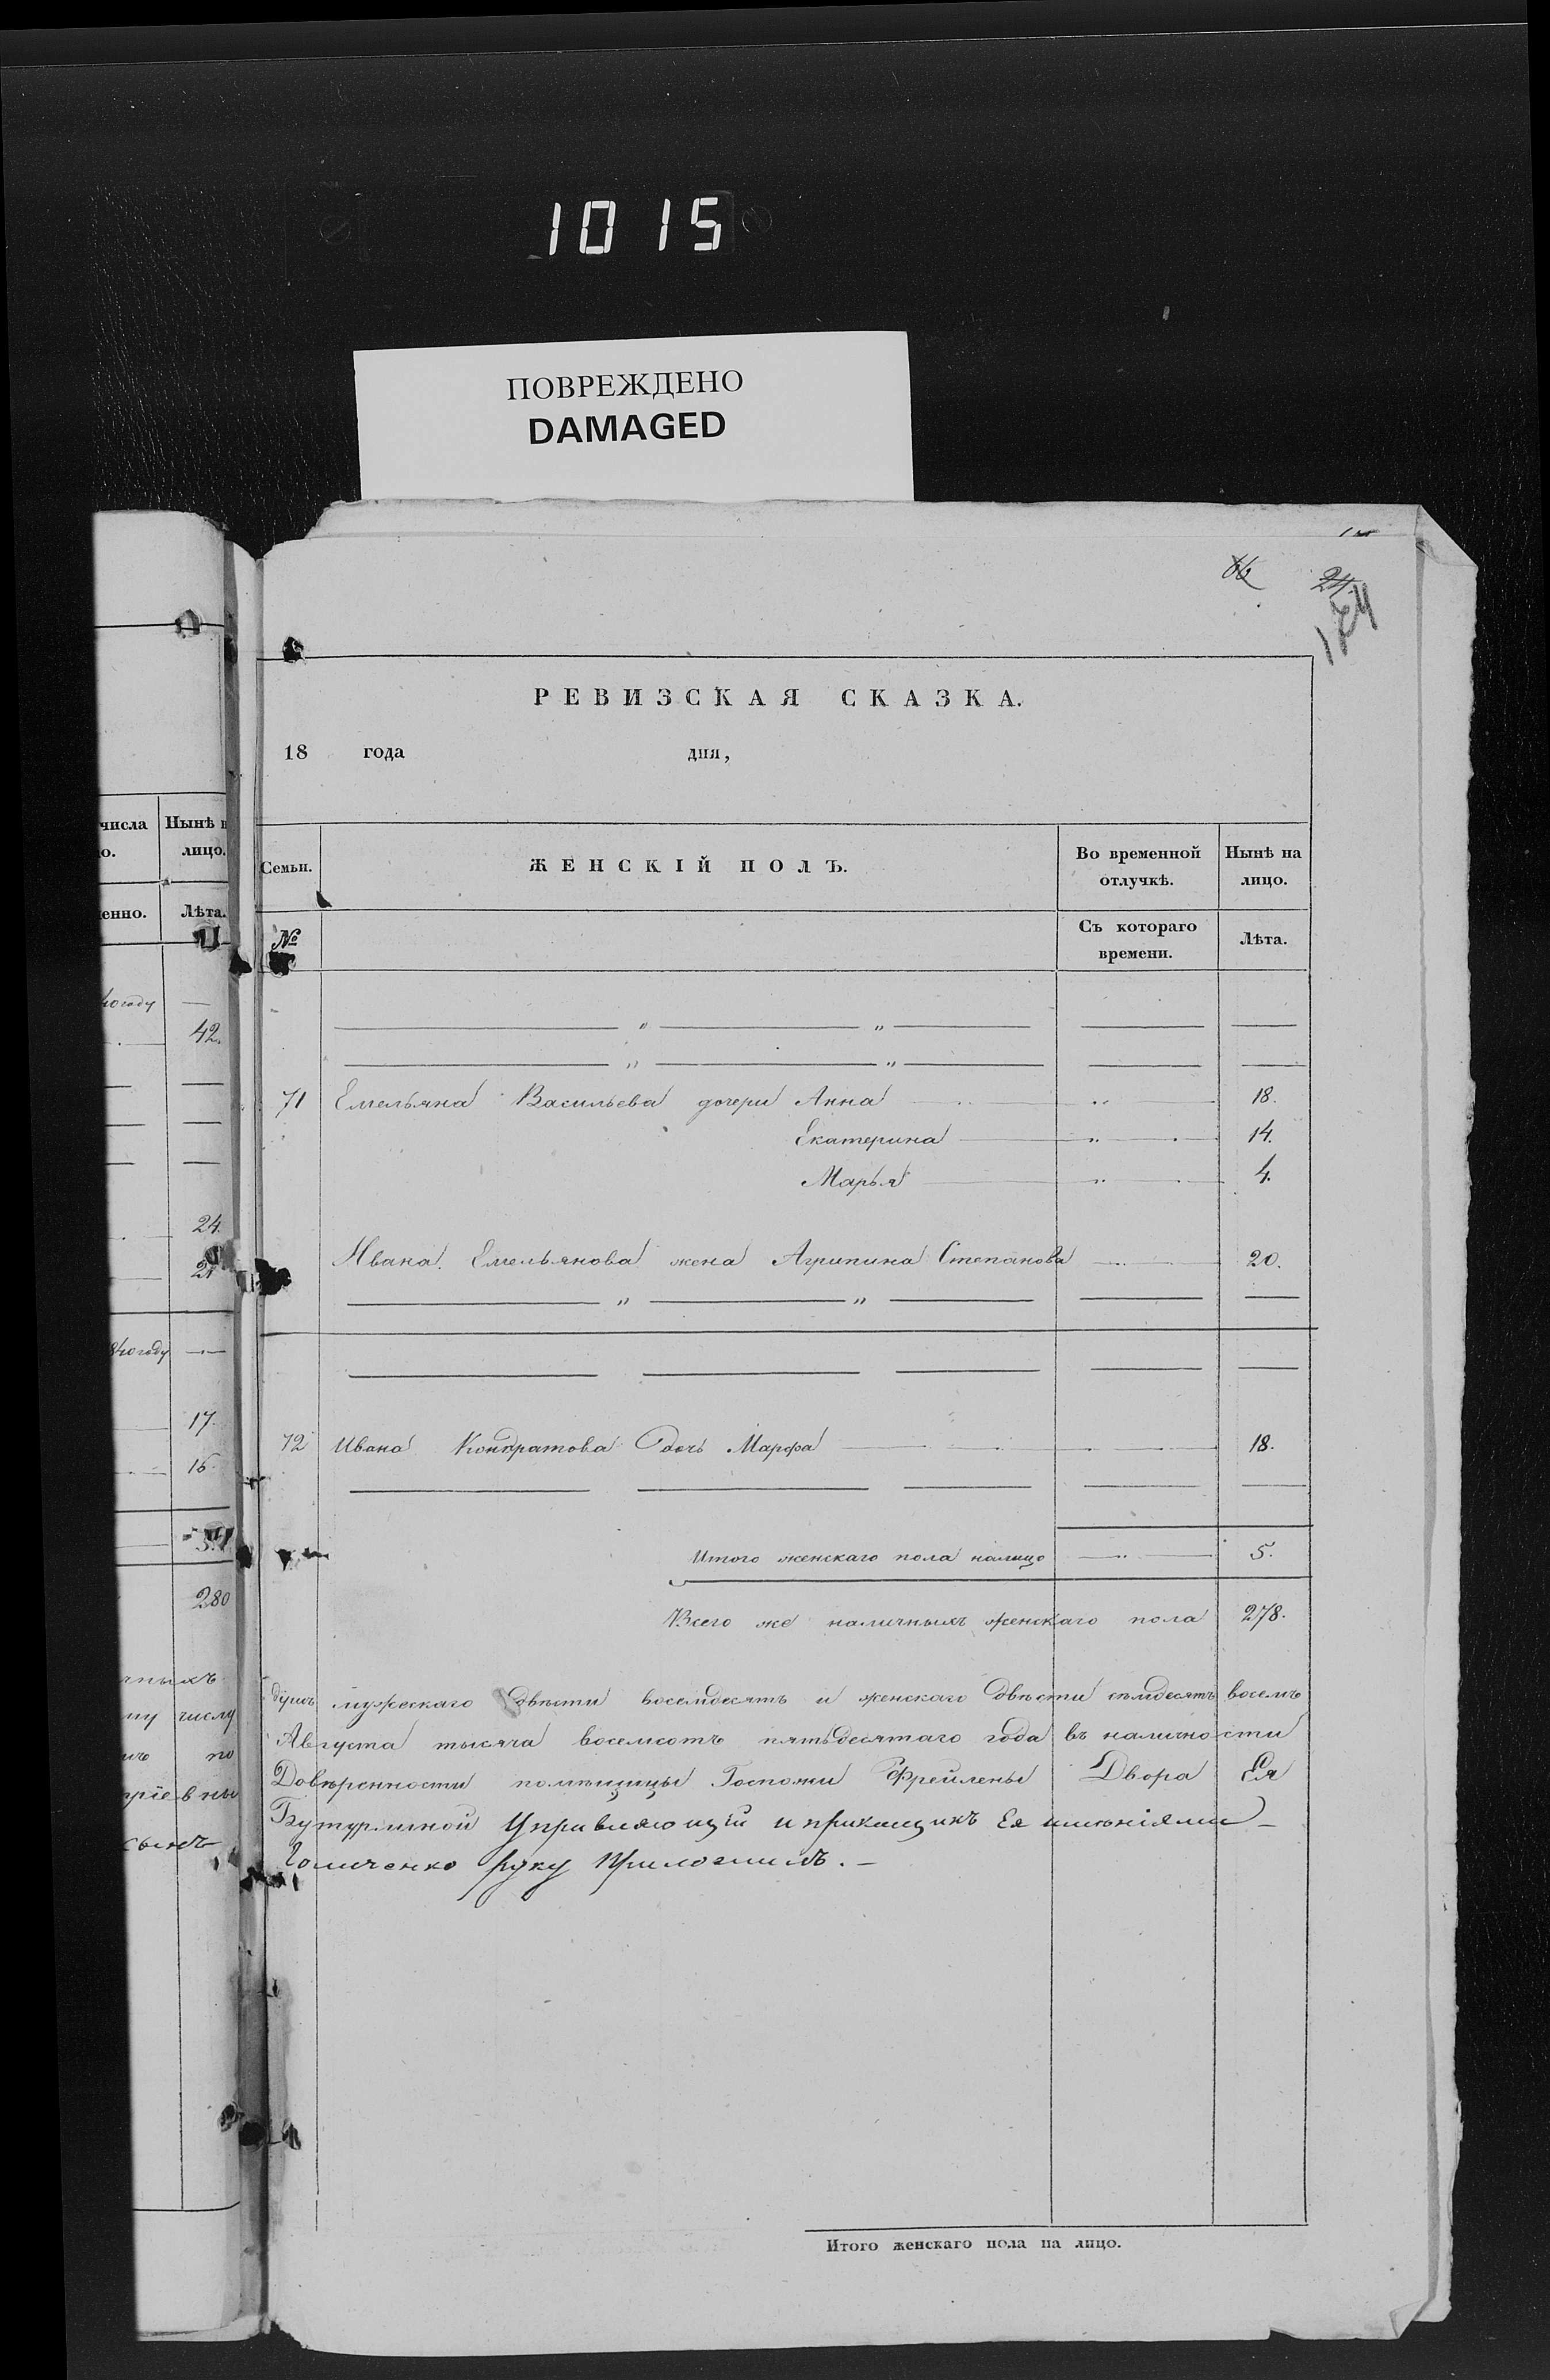 1015
ПОВРЕЖДЕНО
DAMAGED
66
24.
РЕВИЗСКАЯ СКАЗКА.
18 года дня,
числа Нынѣ
о. лицо.
енно. Лѣта.
Семьи. ЖЕНСКІЙ ПОЛЪ. Во временной отлучкѣ. Нынѣ на лицо.
№ Съ котораго времени. Лѣта.
году —
42.
71 Емельяна Васильева дочери Анна — „ — 18.
Екатерина — „ — 14.
Марья — „ — 4.
24.
Ивана Емельянова жена Агрипина Степанова — „ — 20.
году —
17.
72 Ивана Кондратова дочь Марфа — 18.
16.
Итого женскаго пола налицо — „ — 5.
280
Всего же наличныхъ женскаго пола 278.
душъ мужескаго двѣсти восемдесятъ и женскаго двѣсти семдесятъ восемь
му числу Августа тысяча восемсотъ пятьдесятаго года въ наличности
по Довѣренности помѣщицы Госпожи Фрейлены Двора Ея
Бутурлиной Управляющій и прикащикъ Ея имѣніями
сынъ Голиченко руку приложилъ. —
Итого женскаго пола на лицо.